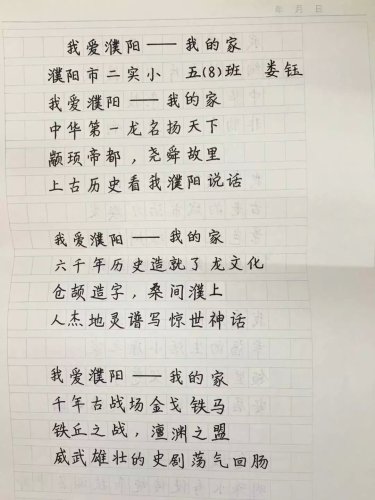 我爱濮阳——我的家
濮阳市二实小 五(8)班 娄钰
我爱濮阳——我的家
中华第一龙名扬天下
颛顼帝都，尧舜故里
上古历史看我濮阳说话
我爱濮阳——我的家
六千年历史造就了龙文化
仓颉造字，桑间濮上
人杰地灵谱写惊世神话
我爱濮阳——我的家
千年古战场金戈铁马
铁丘之战，澶渊之盟
威武雄壮的史剧荡气回肠
年 月 日